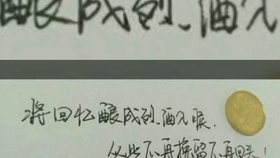 酿成烈酒入
将回忆酿成烈酒入喉.
从此不再挽留不再回头!